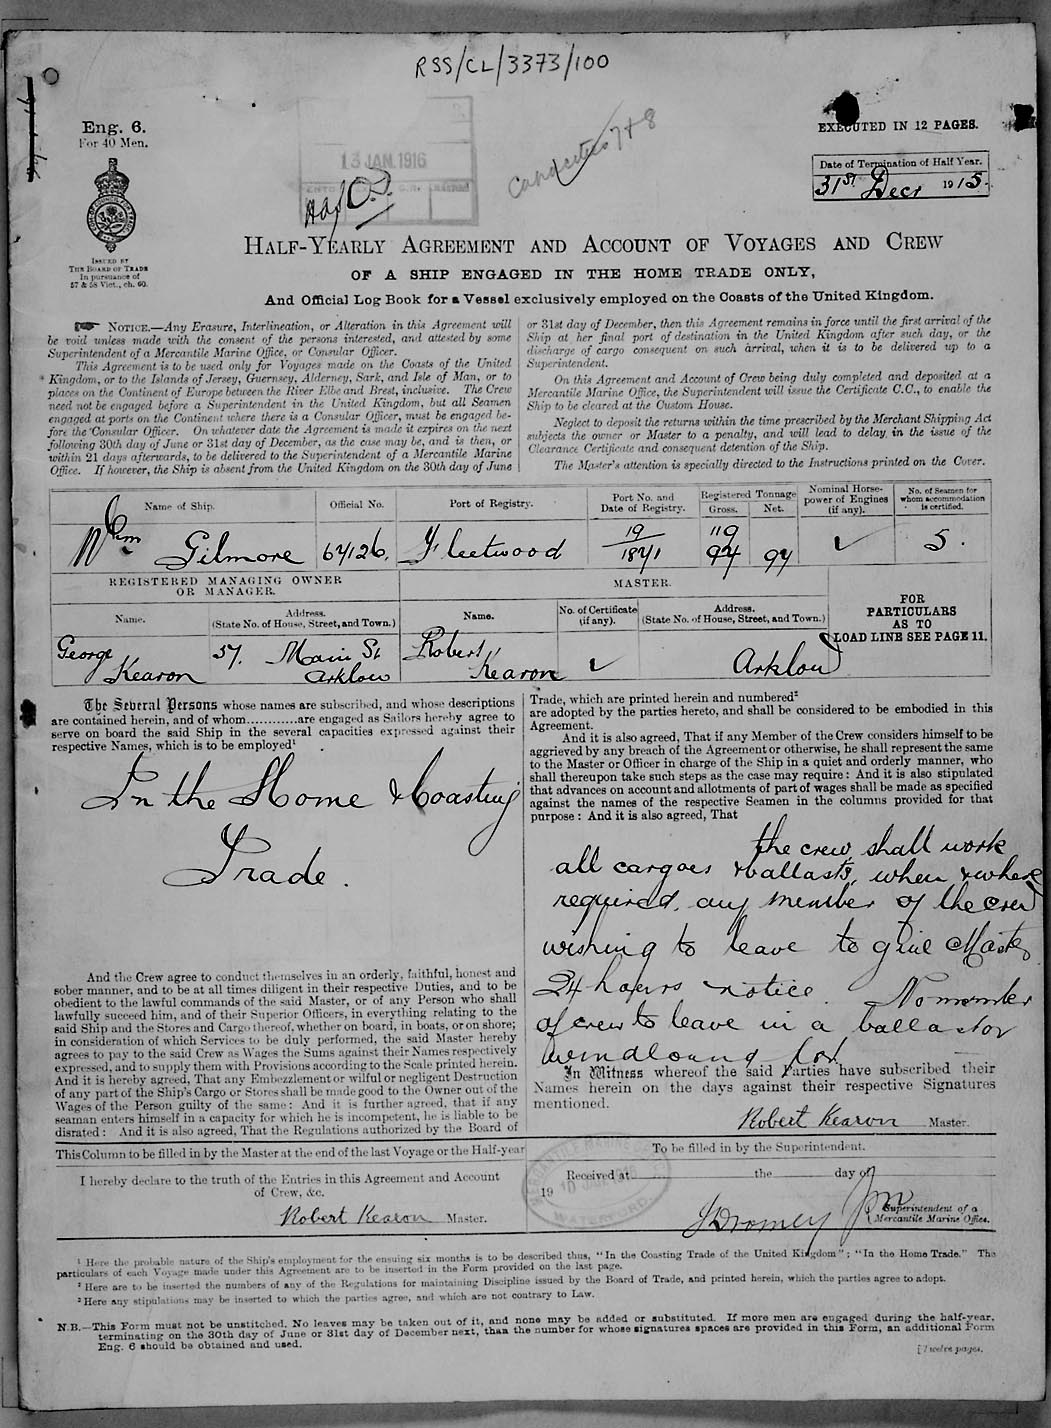 RSS/CL/3373/100
Eng. 6.
For 40 Men.
EXECUTED IN 12 PAGES.
13 JAN. 1916
Date of Termination of Half Year.
31st Decr 1915.
ISSUED BY
THE BOARD OF TRADE
In pursuance of
57 & 58 Vict., ch. 60.
HALF-YEARLY AGREEMENT AND ACCOUNT OF VOYAGES AND CREW
OF A SHIP ENGAGED IN THE HOME TRADE ONLY,
And Official Log Book for a Vessel exclusively employed on the Coasts of the United Kingdom.
NOTICE.—Any Erasure, Interlineation, or Alteration in this Agreement will
be void unless made with the consent of the persons interested, and attested by some
Superintendent of a Mercantile Marine Office, or Consular Officer.
This Agreement is to be used only for Voyages made on the Coasts of the United
Kingdom, or to the Islands of Jersey, Guernsey, Alderney, Sark, and Isle of Man, or to
places on the Continent of Europe between the River Elbe and Brest, inclusive. The Crew
need not be engaged before a Superintendent in the United Kingdom, but all Seamen
engaged at ports on the Continent where there is a Consular Officer, must be engaged be-
fore the Consular Officer. On whatever date the Agreement is made it expires on the next
following 30th day of June or 31st day of December, as the case may be, and is then, or
within 21 days afterwards, to be delivered to the Superintendent of a Mercantile Marine
Office. If however, the Ship is absent from the United Kingdom on the 30th day of June
or 31st day of December, then this Agreement remains in force until the first arrival of the
Ship at her final port of destination in the United Kingdom after such day, or the
discharge of cargo consequent on such arrival, when it is to be delivered up to a
Superintendent.
On this Agreement and Account of Crew being duly completed and deposited at a
Mercantile Marine Office, the Superintendent will issue the Certificate C.C., to enable the
Ship to be cleared at the Custom House.
Neglect to deposit the returns within the time prescribed by the Merchant Shipping Act
subjects the owner or Master to a penalty, and will lead to delay in the issue of the
Clearance Certificate and consequent detention of the Ship.
The Master's attention is specially directed to the Instructions printed on the Cover.
Name of Ship. Official No. Port of Registry. Port No. and Date of Registry. Registered Tonnage Gross. Net. Nominal Horse-power of Engines (if any). No. of Seamen for whom accommodation is certified.
Wm Gilmore 64126. Fleetwood 19/1871 119 94 97 5.
REGISTERED MANAGING OWNER OR MANAGER.
MASTER.
FOR PARTICULARS AS TO LOAD LINE SEE PAGE 11.
Name. Address. (State No. of House, Street, and Town.) Name. No. of Certificate (if any). Address. (State No. of House, Street, and Town.)
George Kearon 57. Main St Arklow Robert Kearon Arklow
The Several Persons whose names are subscribed, and whose descriptions
are contained herein, and of whom............are engaged as Sailors hereby agree to
serve on board the said Ship in the several capacities expressed against their
respective Names, which is to be employed¹
In the Home & Coasting
Trade.
And the Crew agree to conduct themselves in an orderly, faithful, honest and
sober manner, and to be at all times diligent in their respective Duties, and to be
obedient to the lawful commands of the said Master, or of any Person who shall
lawfully succeed him, and of their Superior Officers, in everything relating to the
said Ship and the Stores and Cargo thereof, whether on board, in boats, or on shore;
in consideration of which Services to be duly performed, the said Master hereby
agrees to pay to the said Crew as Wages the Sums against their Names respectively
expressed, and to supply them with Provisions according to the Scale printed herein.
And it is hereby agreed, That any Embezzlement or wilful or negligent Destruction
of any part of the Ship's Cargo or Stores shall be made good to the Owner out of the
Wages of the Person guilty of the same: And it is further agreed, that if any
seaman enters himself in a capacity for which he is incompetent, he is liable to be
disrated: And it is also agreed, That the Regulations authorized by the Board of
Trade, which are printed herein and numbered²
are adopted by the parties hereto, and shall be considered to be embodied in this
Agreement.
And it is also agreed, That if any Member of the Crew considers himself to be
aggrieved by any breach of the Agreement or otherwise, he shall represent the same
to the Master or Officer in charge of the Ship in a quiet and orderly manner, who
shall thereupon take such steps as the case may require: And it is also stipulated
that advances on account and allotments of part of wages shall be made as specified
against the names of the respective Seamen in the columns provided for that
purpose: And it is also agreed, That
the crew shall work
all cargoes & ballasts, when & where
required. any member of the crew
wishing to leave to give Master
24 hours notice. No member
of crew to leave in a ballast or
windbound port
In Witness whereof the said Parties have subscribed their
Names herein on the days against their respective Signatures
mentioned.
Robert Kearon Master.
This Column to be filled in by the Master at the end of the last Voyage or the Half-year
I hereby declare to the truth of the Entries in this Agreement and Account
of Crew, &c.
Robert Kearon Master.
To be filled in by the Superintendent.
Received at the day of
19
WATERFORD
Superintendent of a
Mercantile Marine Office.
¹ Here the probable nature of the Ship's employment for the ensuing six months is to be described thus, "In the Coasting Trade of the United Kingdom"; "In the Home Trade." The
particulars of each Voyage made under this Agreement are to be inserted in the Form provided on the last page.
² Here are to be inserted the numbers of any of the Regulations for maintaining Discipline issued by the Board of Trade, and printed herein, which the parties agree to adopt.
³ Here any stipulations may be inserted to which the parties agree, and which are not contrary to Law.
N.B.—This Form must not be unstitched. No leaves may be taken out of it, and none may be added or substituted. If more men are engaged during the half-year,
terminating on the 30th day of June or 31st day of December next, than the number for whose signatures spaces are provided in this Form, an additional Form
Eng. 6 should be obtained and used.
[Twelve pages.